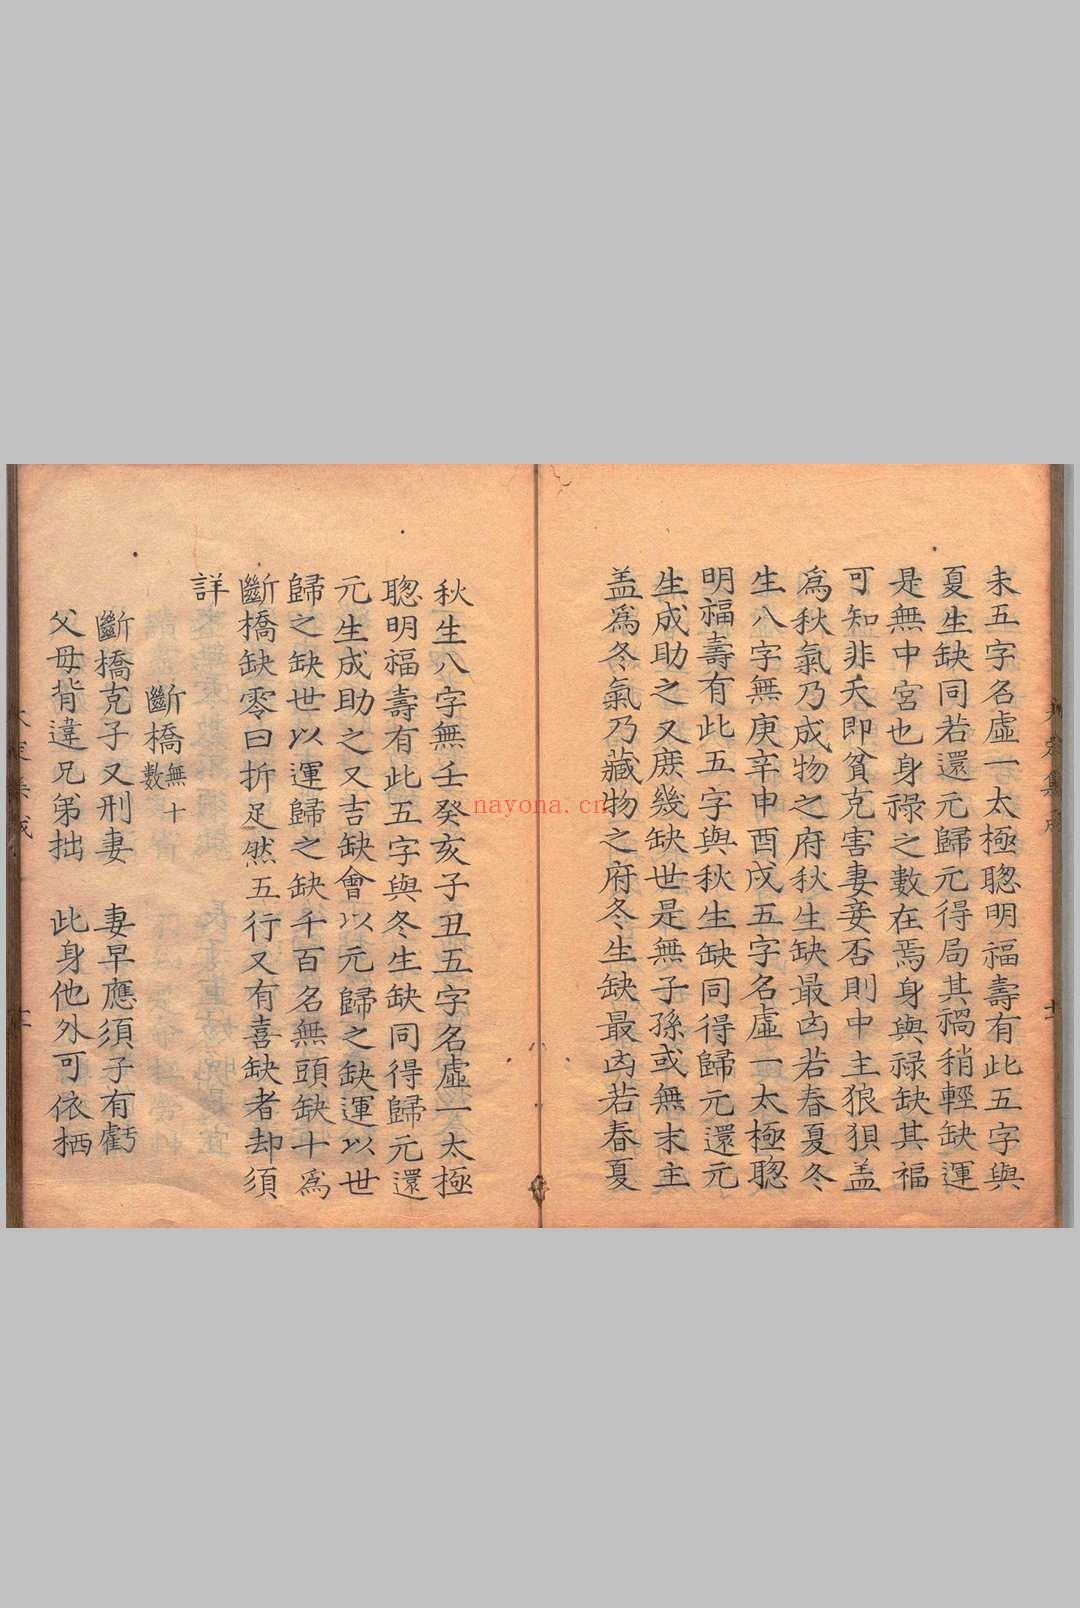 未五字名虛一太極聰明福壽有此五字與
夏生缺同若還元歸元得局其禍稍輕缺運
是無中宮也身祿之數在焉身與祿缺其福
可知非夭即貧克害妻妾否則中主狼狽盖
爲秋氣乃成物之府秋生缺最凶若春夏冬
生八字無庚辛申酉戌五字名虛一太極聰
明福壽有此五字與秋生缺同得歸元還元
生成助之又庻幾缺世是無子孫或無末主
盖爲冬氣乃藏物之府冬生缺最凶若春夏
秋生八字無壬癸亥子丑五字名虛一太極
聰明福壽有此五字與冬生缺同得歸元還
元生成助之又吉缺會以元歸之缺運以世
歸之缺世以運歸之缺千百名無頭缺十爲
斷橋缺零曰折足然五行又有喜缺者却須
詳
斷橋無十數
斷橋克子又刑妻 妻早應須子有虧
父母背違兄弟拙 此身他外可依栖
nayona.cn